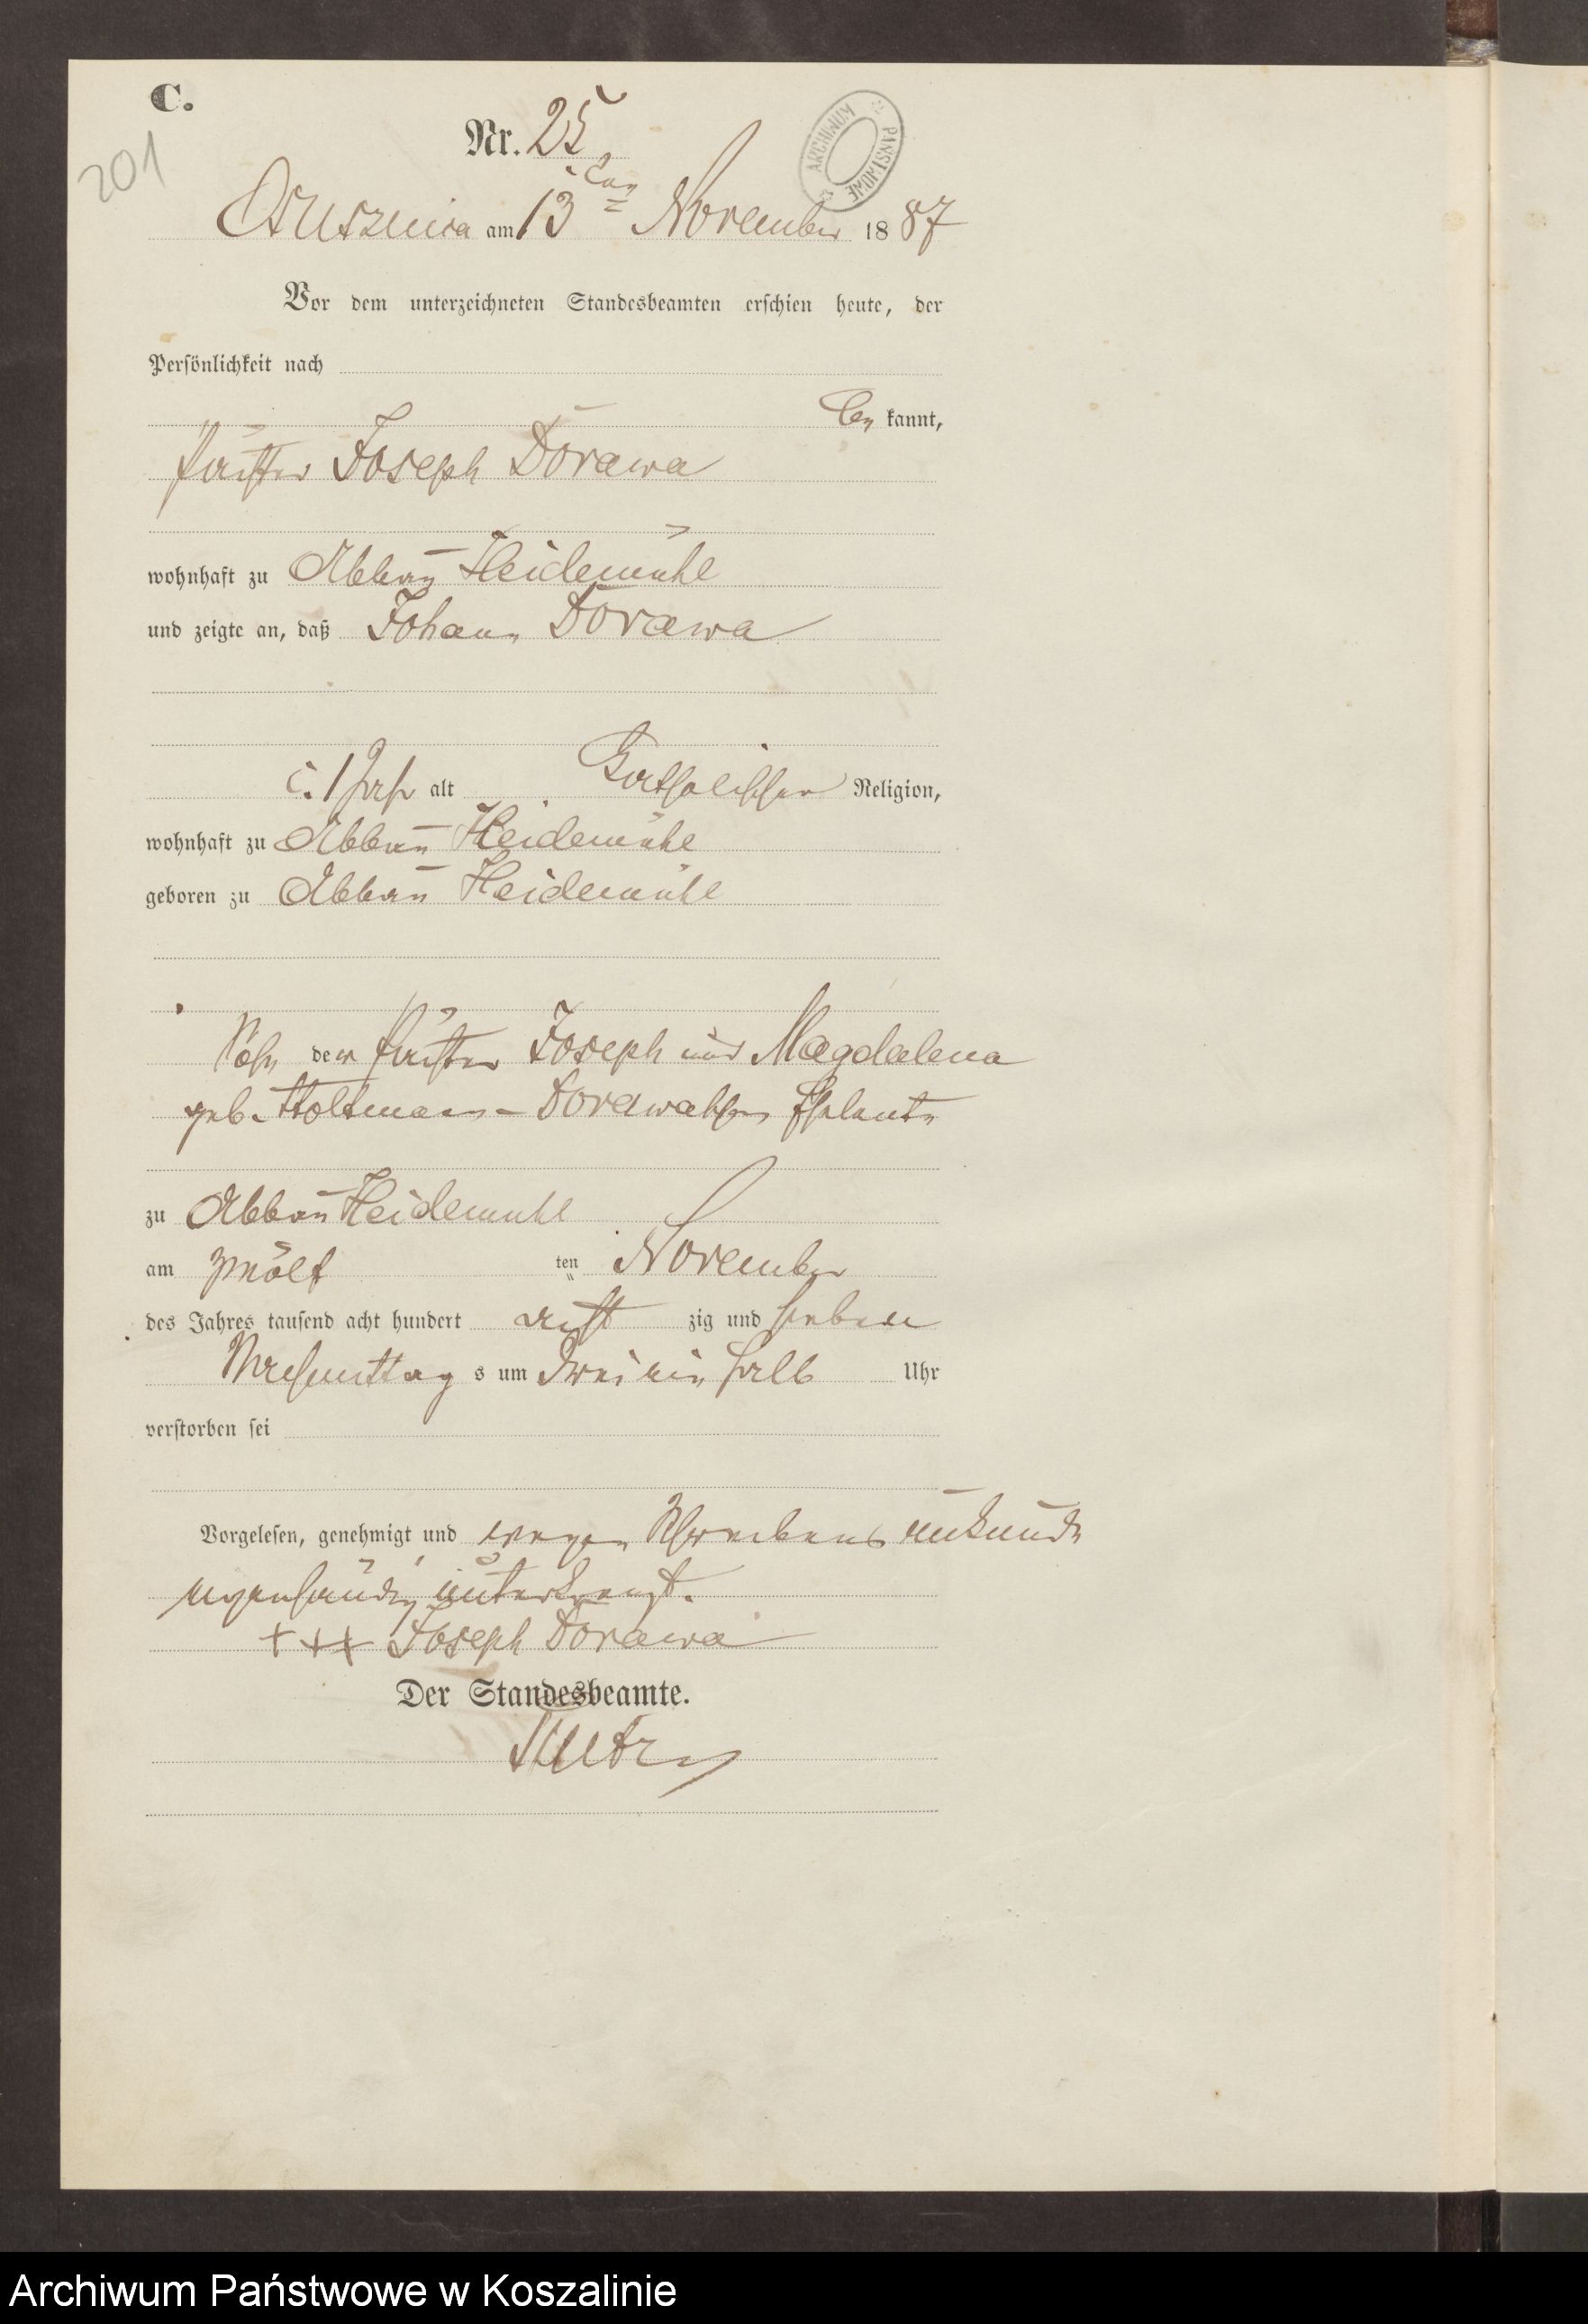 C.
201
Nr. 25
ARCHIWUM PAŃSTWOWE
Ossusznica am 13ten November 1887
Vor dem unterzeichneten Standesbeamten erschien heute, der
Persönlichkeit nach
be kannt,
Joseph Dorawa
wohnhaft zu Abbau Heidemühl
und zeigte an, daß Johann Dorawa
1 Jahr alt Katholischer Religion,
wohnhaft zu Abbau Heidemühl
geboren zu Abbau Heidemühl
Sohn der Joseph und Magdalena
geb. Holtmann-Dorawaschen Eheleute
zu Abbau Heidemühl
am zwölf ten November
des Jahres tausend acht hundert acht zig und sieben
Nachmittag s um Uhr
verstorben sei
Vorgelesen, genehmigt und wegen Schreibens unkunde
eigenhändig unterkreuzt.
+++ Joseph Dorawa
Der Standesbeamte.
Archiwum Państwowe w Koszalinie